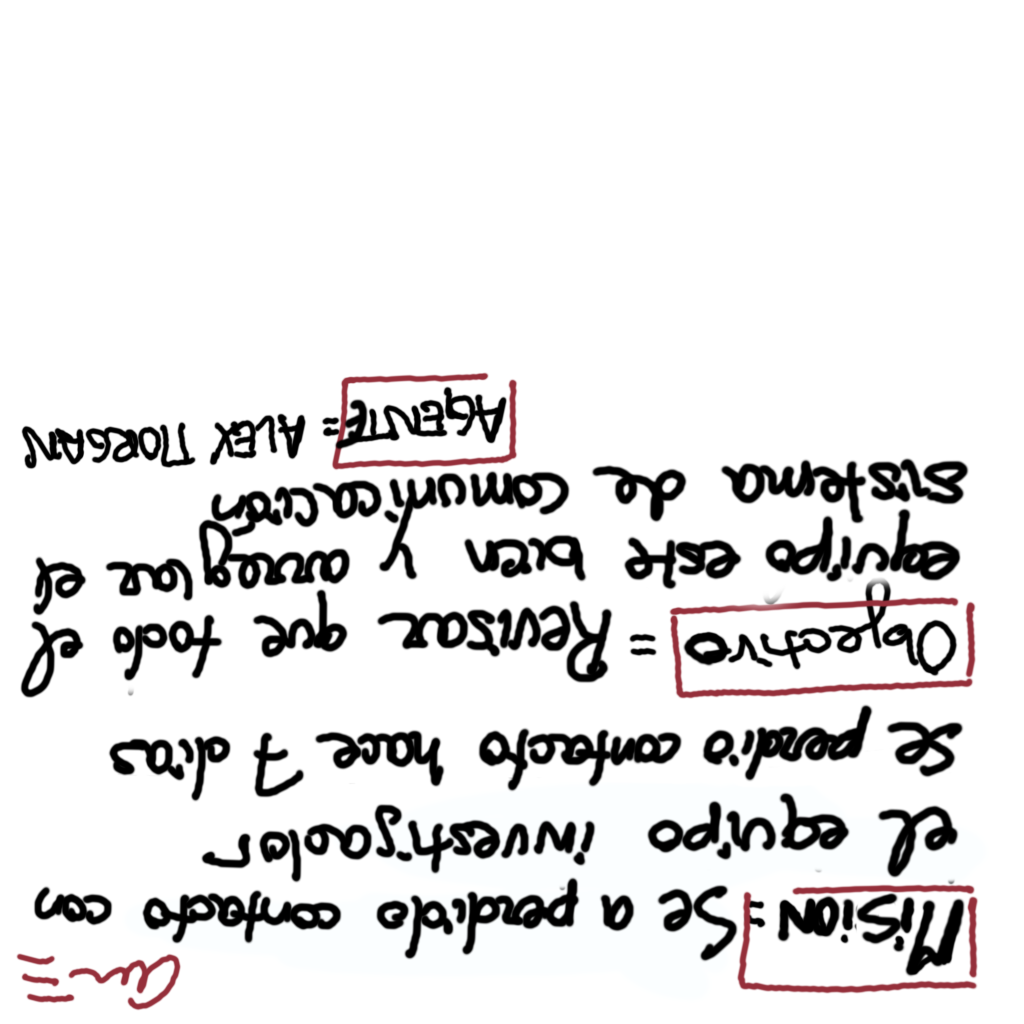 Mision = Se a perdido contacto con
el equipo investigador
se perdio contacto hace 7 dias
Objectivo = Revisar que todo el
equipo este bien y arreglar el
sistema de comunicación
AGENTE = ALEX MORGAN